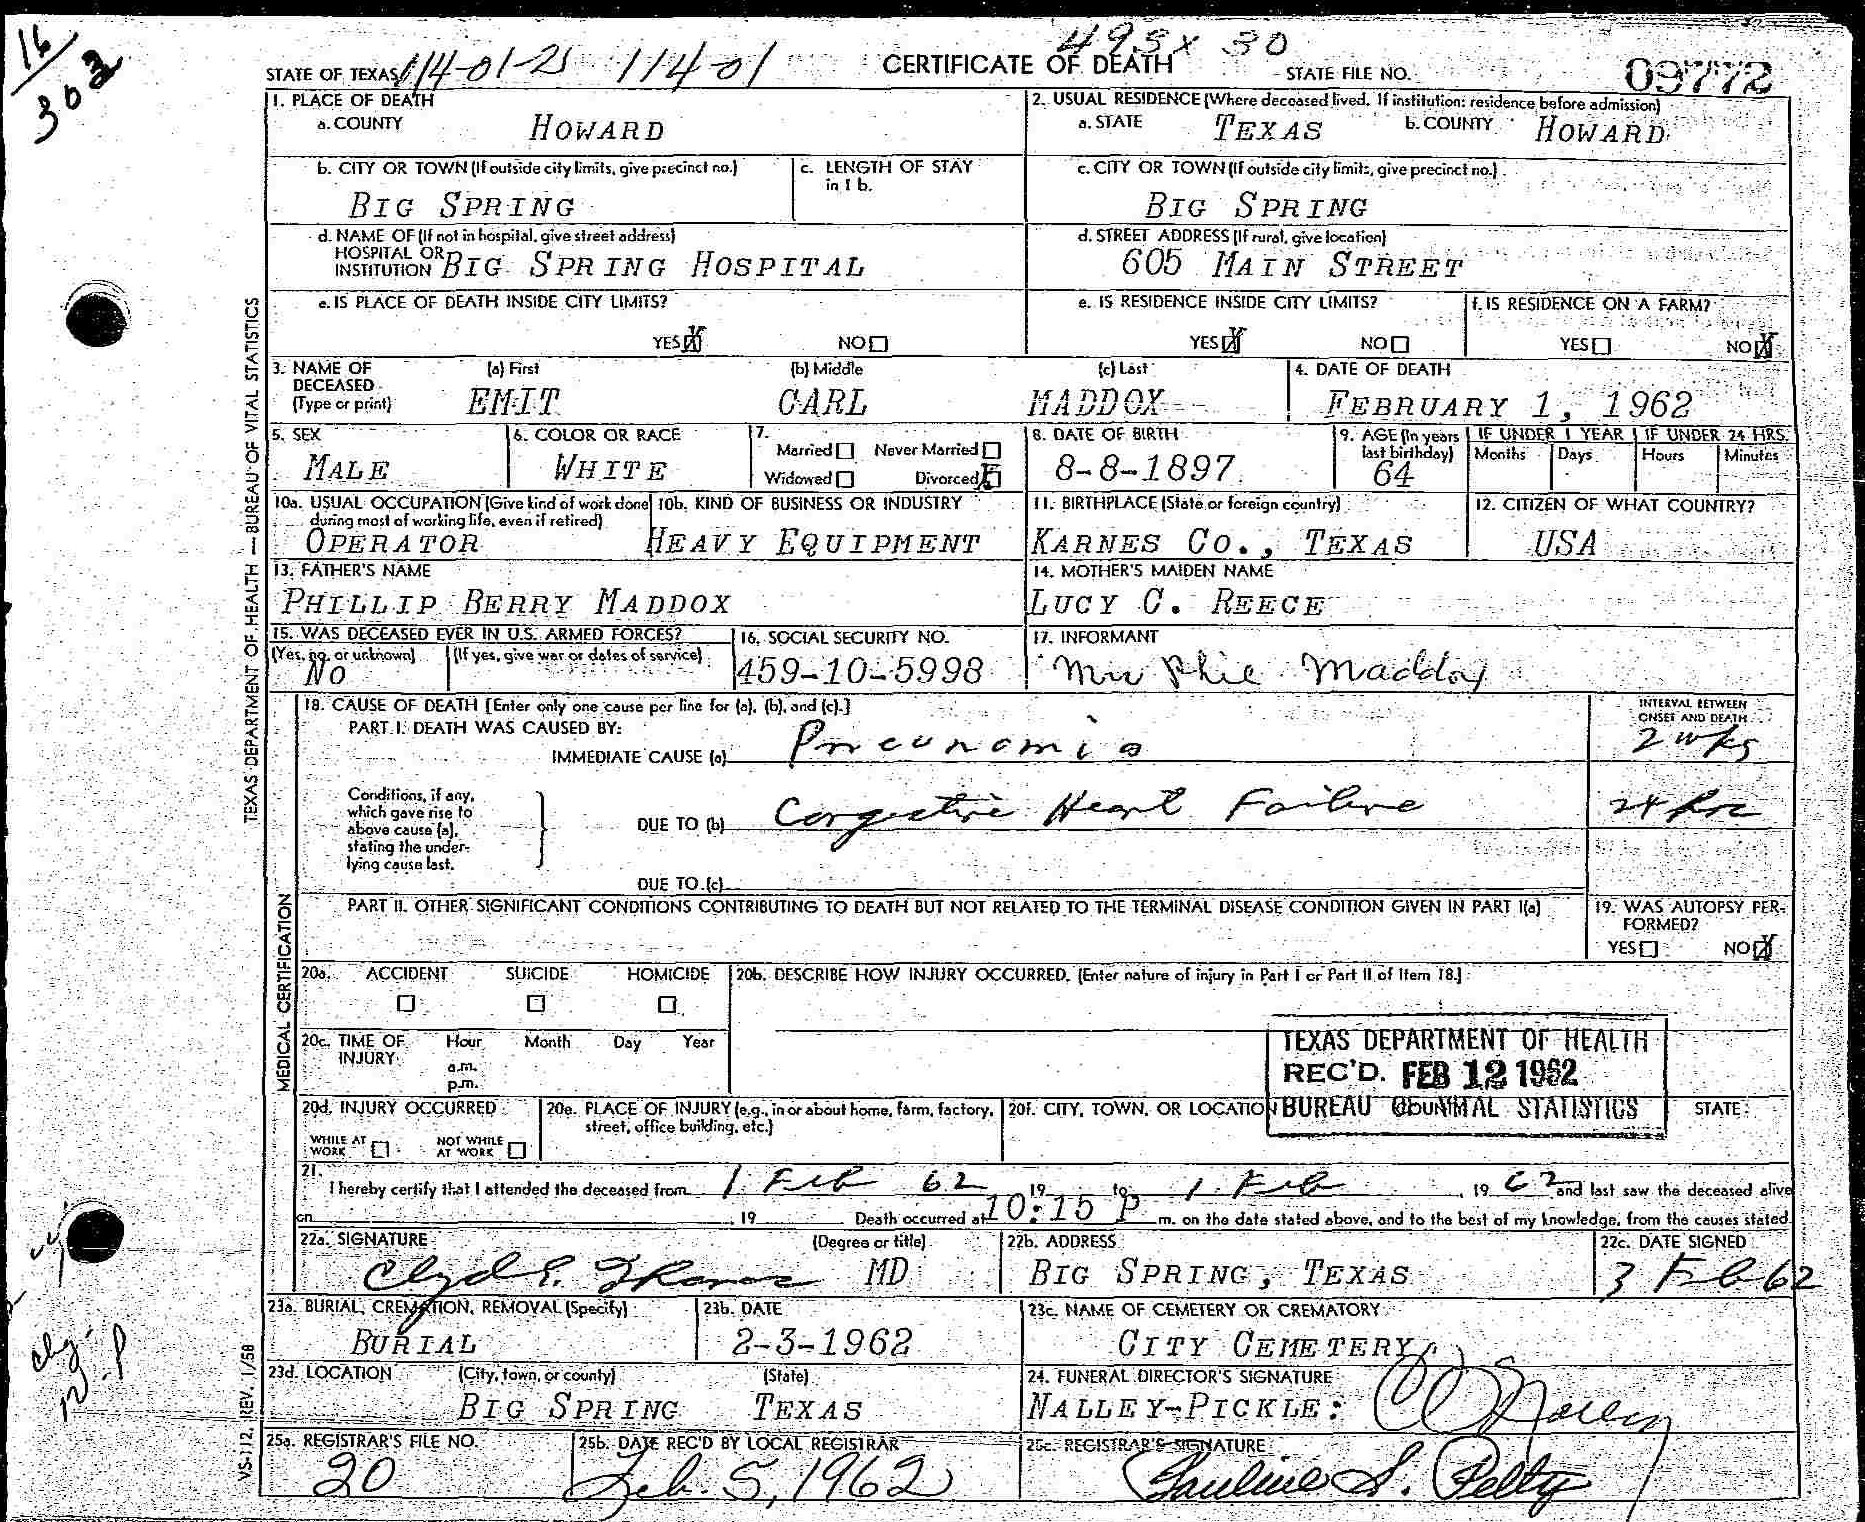 16
302
493x 30
STATE OF TEXAS 114-01-21 114-01 CERTIFICATE OF DEATH STATE FILE NO. 09772
1. PLACE OF DEATH
a. COUNTY HOWARD
2. USUAL RESIDENCE (Where deceased lived. If institution: residence before admission)
a. STATE TEXAS b. COUNTY HOWARD
b. CITY OR TOWN (If outside city limits, give precinct no.)
BIG SPRING
c. LENGTH OF STAY
in 1 b.
c. CITY OR TOWN (If outside city limits, give precinct no.)
BIG SPRING
d. NAME OF (If not in hospital, give street address)
HOSPITAL OR
INSTITUTION BIG SPRING HOSPITAL
d. STREET ADDRESS (If rural, give location)
605 MAIN STREET
e. IS PLACE OF DEATH INSIDE CITY LIMITS?
YES X NO
e. IS RESIDENCE INSIDE CITY LIMITS?
YES X NO
f. IS RESIDENCE ON A FARM?
YES NO X
3. NAME OF DECEASED (Type or print)
(a) First (b) Middle (c) Last
EMIT CARL MADDOX
4. DATE OF DEATH
FEBRUARY 1, 1962
5. SEX
MALE
6. COLOR OR RACE
WHITE
7.
Married Never Married
Widowed Divorced X
8. DATE OF BIRTH
8-8-1897
9. AGE (In years
last birthday)
64
IF UNDER 1 YEAR IF UNDER 24 HRS.
Months Days Hours Minutes
10a. USUAL OCCUPATION (Give kind of work done
during most of working life, even if retired)
OPERATOR
10b. KIND OF BUSINESS OR INDUSTRY
HEAVY EQUIPMENT
11. BIRTHPLACE (State or foreign country)
KARNES CO., TEXAS
12. CITIZEN OF WHAT COUNTRY?
USA
13. FATHER'S NAME
PHILLIP BERRY MADDOX
14. MOTHER'S MAIDEN NAME
LUCY C. REECE
15. WAS DECEASED EVER IN U.S. ARMED FORCES?
(Yes, no, or unknown) (If yes, give war or dates of service)
NO
16. SOCIAL SECURITY NO.
459-10-5998
17. INFORMANT
Maddox
18. CAUSE OF DEATH [Enter only one cause per line for (a), (b), and (c).]
PART I. DEATH WAS CAUSED BY:
IMMEDIATE CAUSE (a) Pneunomia
INTERVAL BETWEEN
ONSET AND DEATH
2 wks
Conditions, if any,
which gave rise to
above cause (a),
stating the under-
lying cause last.
DUE TO (b) Congestive Heart Failure
24 hrs
DUE TO (c)
PART II. OTHER SIGNIFICANT CONDITIONS CONTRIBUTING TO DEATH BUT NOT RELATED TO THE TERMINAL DISEASE CONDITION GIVEN IN PART I(a)
19. WAS AUTOPSY PER-
FORMED?
YES NO X
20a. ACCIDENT SUICIDE HOMICIDE
20b. DESCRIBE HOW INJURY OCCURRED. (Enter nature of injury in Part I or Part II of Item 18.)
20c. TIME OF INJURY
Hour Month Day Year
a.m.
p.m.
TEXAS DEPARTMENT OF HEALTH
REC'D. FEB 12 1962
BUREAU OF VITAL STATISTICS
20d. INJURY OCCURRED
WHILE AT WORK NOT WHILE AT WORK
20e. PLACE OF INJURY (e.g., in or about home, farm, factory,
street, office building, etc.)
20f. CITY, TOWN, OR LOCATION COUNTY STATE
21.
I hereby certify that I attended the deceased from 1 Feb 62 19 to 1 Feb , 19 62 and last saw the deceased alive
on , 19 Death occurred at 10:15 P m. on the date stated above, and to the best of my knowledge, from the causes stated.
22a. SIGNATURE (Degree or title)
Clyde E. MD
22b. ADDRESS
BIG SPRING, TEXAS
22c. DATE SIGNED
3 Feb 62
23a. BURIAL, CREMATION, REMOVAL (Specify)
BURIAL
23b. DATE
2-3-1962
23c. NAME OF CEMETERY OR CREMATORY
CITY CEMETERY
23d. LOCATION (City, town, or county) (State)
BIG SPRING TEXAS
24. FUNERAL DIRECTOR'S SIGNATURE
NALLEY-PICKLE: Nalley
25a. REGISTRAR'S FILE NO.
20
25b. DATE REC'D BY LOCAL REGISTRAR
Feb. 5, 1962
25c. REGISTRAR'S SIGNATURE
Pauline S. Petty
TEXAS DEPARTMENT OF HEALTH — BUREAU OF VITAL STATISTICS
MEDICAL CERTIFICATION
VS-112, REV. 1/58